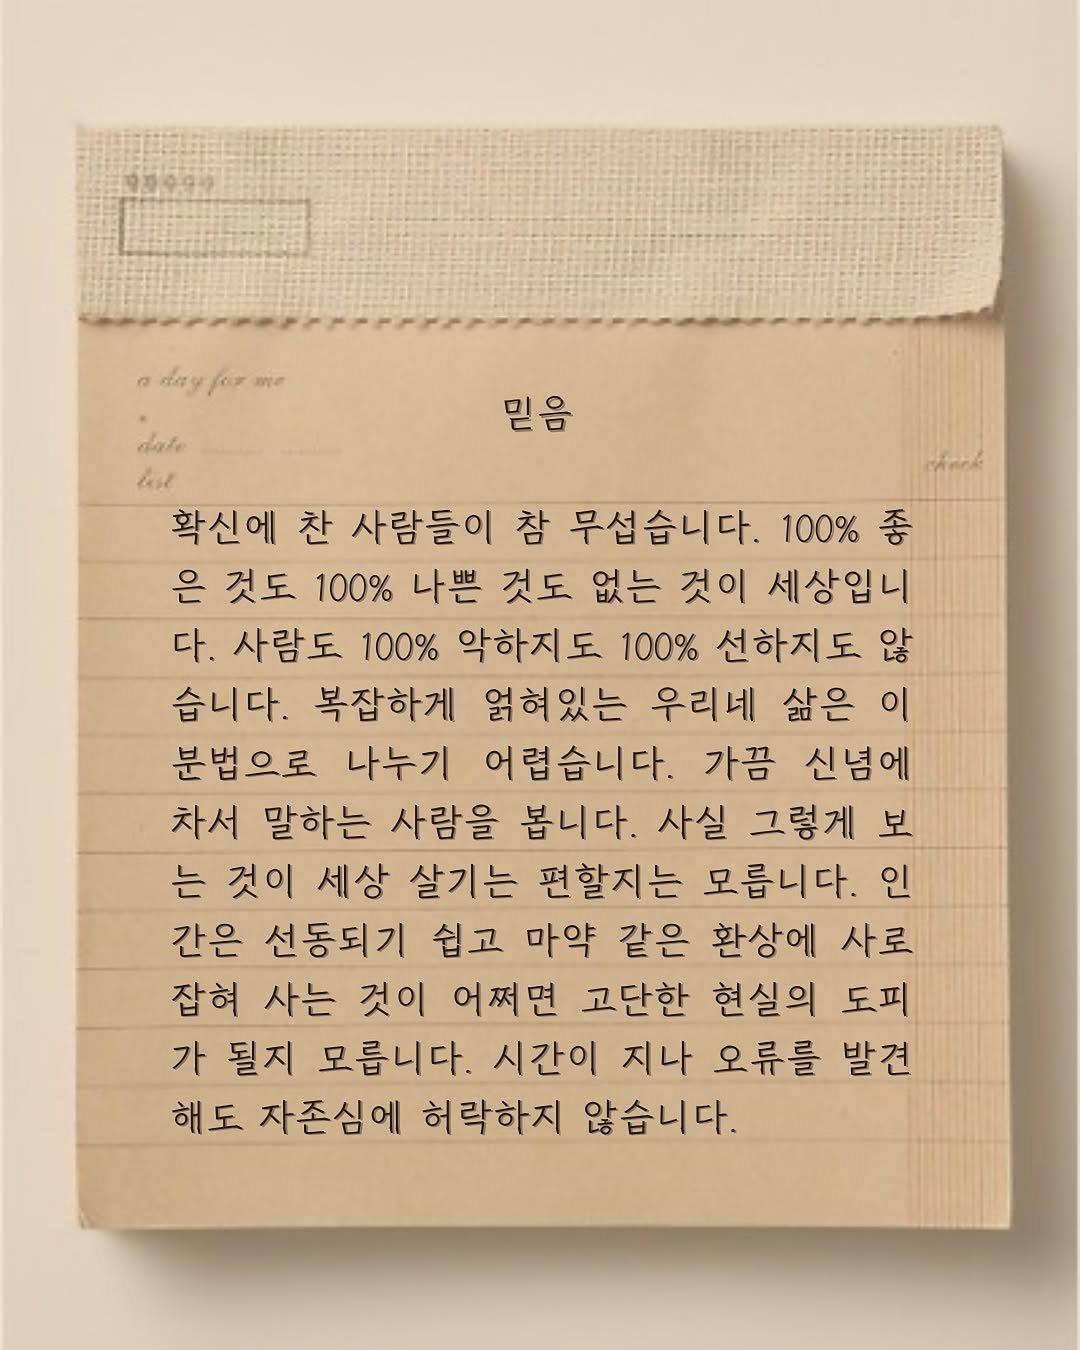 a day for me
믿음
date
check
list
확신에 찬 사람들이 참 무섭습니다. 100% 좋
은 것도 100% 나쁜 것도 없는 것이 세상입니
다. 사람도 100% 악하지도 100% 선하지도 않
습니다. 복잡하게 얽혀있는 우리네 삶은 이
분법으로 나누기 어렵습니다. 가끔 신념에
차서 말하는 사람을 봅니다. 사실 그렇게 보
는 것이 세상 살기는 편할지는 모릅니다. 인
간은 선동되기 쉽고 마약 같은 환상에 사로
잡혀 사는 것이 어쩌면 고단한 현실의 도피
가 될지 모릅니다. 시간이 지나 오류를 발견
해도 자존심에 허락하지 않습니다.